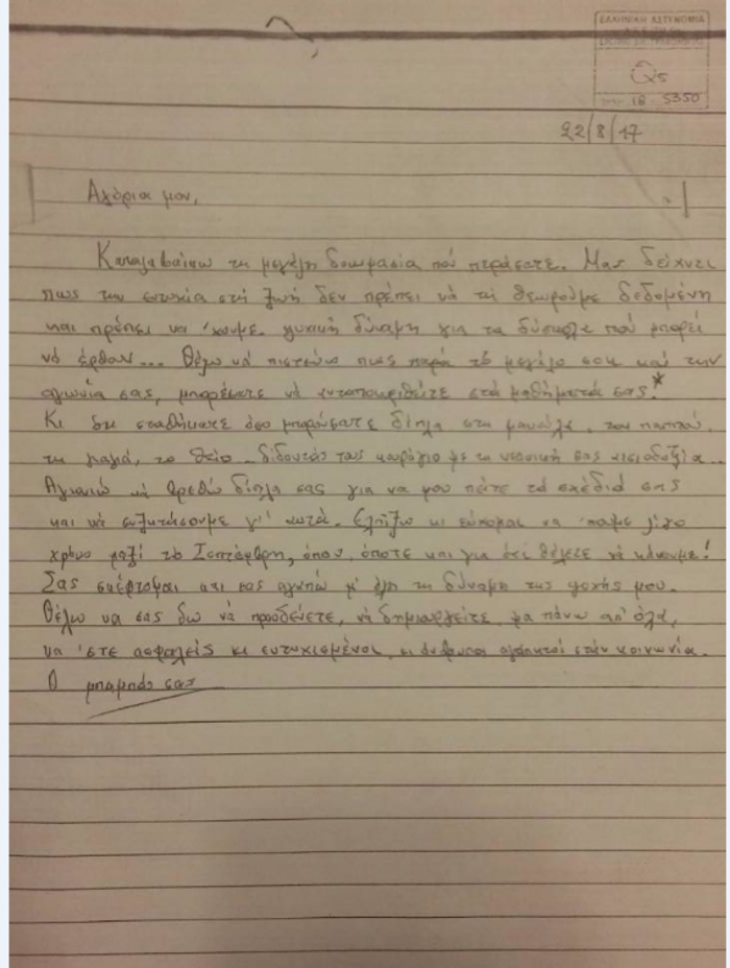 ΕΛΛΗΝΙΚΗ ΑΣΤΥΝΟΜΙΑ
18 - 5350
22/8/17
Αγόρια μου,
Καταλαβαίνω τη μεγάλη δοκιμασία πού περάσατε. Μας δείχνει
πως την ευτυχία στή ζωή δεν πρέπει νά τή θεωρούμε δεδομένη
και πρέπει να 'χουμε ψυχική δύναμη για τα δύσκολα πού μπορεί
νά έρθουν... Θέλω νά πιστεύω πως παρά τό μεγάλο σοκ και την
αγωνία σας, μπορέσατε νά ανταποκριθείτε στά μαθήματά σας.*
Κι αν σταθήκατε όσο μπορούσατε δίπλα στη μανούλα, τον παππού,
τη γιαγιά, το θείο δίδοντάς τους κουράγιο με τη νεανική σας αισιοδοξία...
νά βρεθώ δίπλα σας για να μου πείτε τά σχέδιά σας
και νά συζητήσουμε γι' αυτά. Ελπίζω κι εύχομαι να 'χουμε λίγο
χρόνο μαζί τό Σεπτέμβρη, όπου, όποτε και για ό,τι θέλετε νά κάνουμε!
Σας σκέφτομαι και σας αγαπώ μ' όλη τη δύναμη της ψυχής μου.
Θέλω να σας δω νά προοδεύετε, νά δημιουργείτε, μα πάνω απ' όλα,
να 'στε ασφαλείς κι ευτυχισμένοι, κι άνθρωποι αγαπητοί στην κοινωνία.
Ο μπαμπάς σας